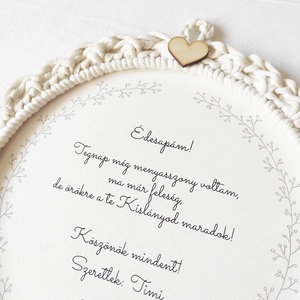 Édesapám!
Tegnap még menyasszony voltam,
ma már feleség,
de örökre a te Kislányod maradok!
Köszönök mindent!
Szeretlek: Timi